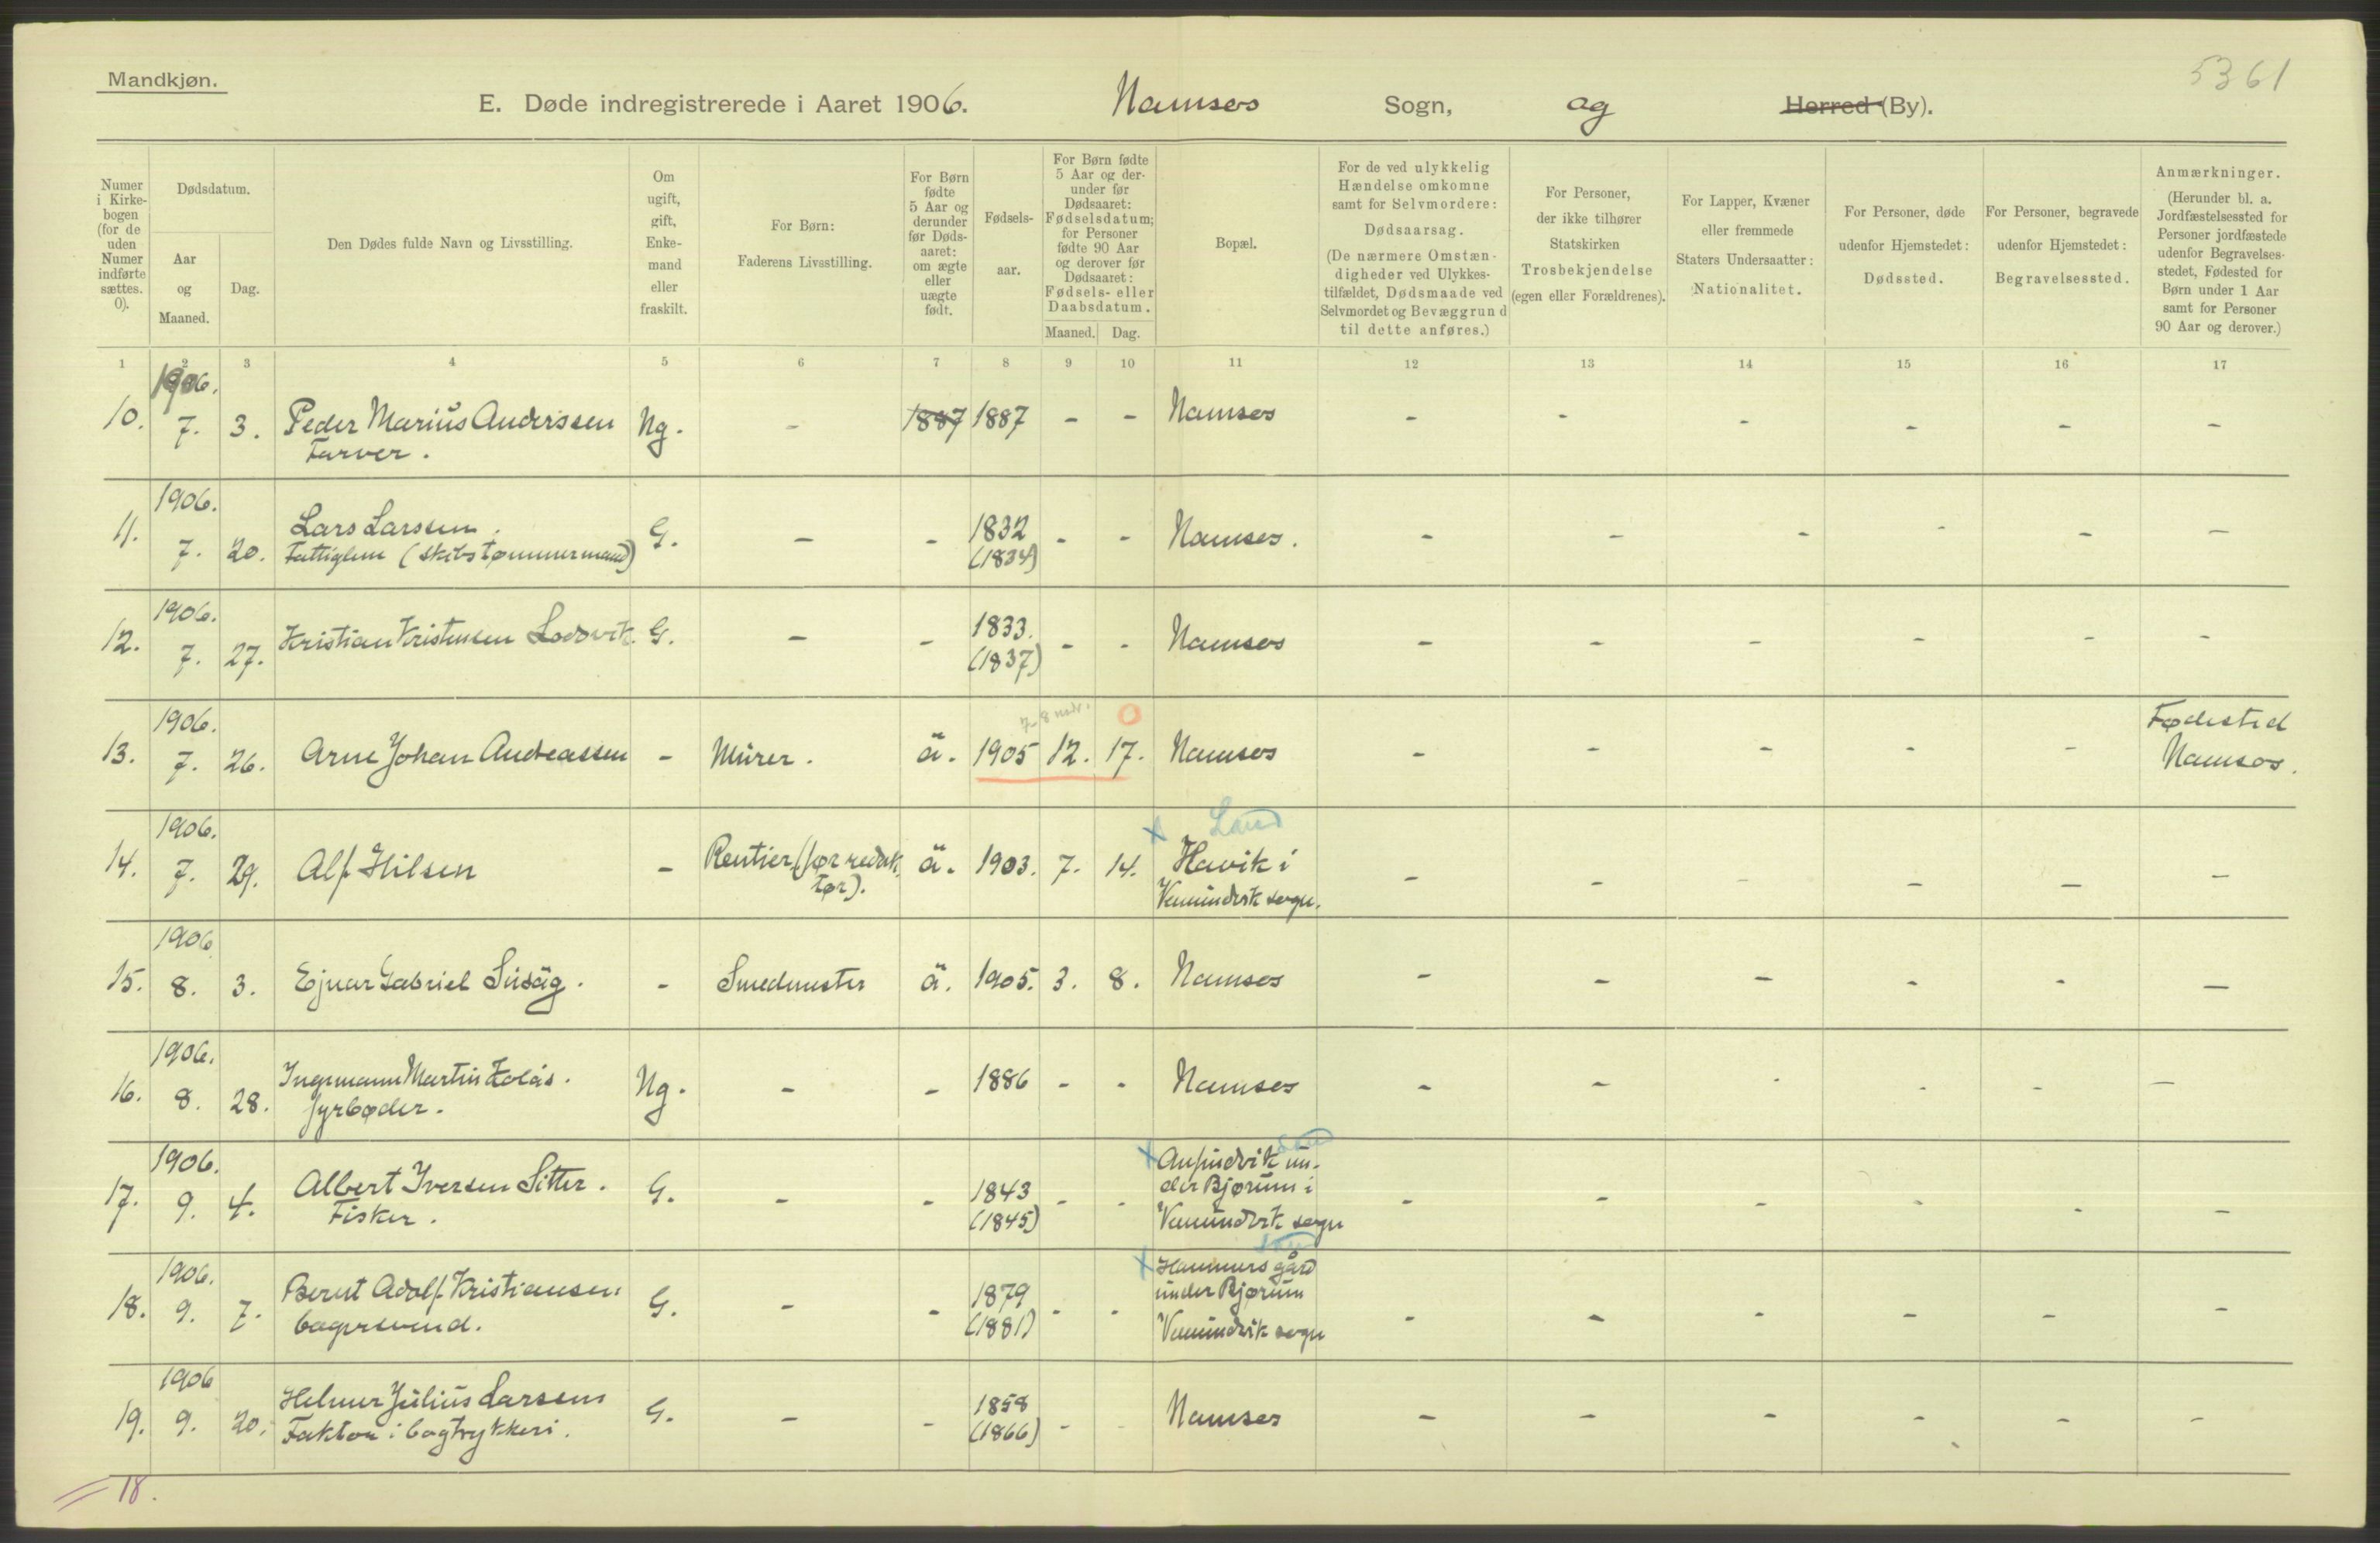 Mandkjøn.
5361
E. Døde indregistrerede i Aaret 1906. Namsos Sogn, og Herred (By).
Numer i Kirke-bogen (for de uden Numer indførte sættes. 0).
Dødsdatum.
Aar og Maaned.
Dag.
Den Dødes fulde Navn og Livsstilling.
Om ugift, gift, Enke-mand eller fraskilt.
For Børn: Faderens Livsstilling.
For Børn fødte 5 Aar og derunder før Døds-aaret: om ægte eller uægte født.
Fødsels-aar.
For Børn fødte 5 Aar og der-under før Dødsaaret: Fødselsdatum; for Personer fødte 90 Aar og derover før Dødsaaret: Fødsels- eller Daabsdatum.
Maaned. Dag.
Bopæl.
For de ved ulykkelig Hændelse omkomne samt for Selvmordere: Dødsaarsag. (De nærmere Omstæn-digheder ved Ulykkes-tilfældet, Dødsmaade ved Selvmordet og Bevæggrund til dette anføres.)
For Personer, der ikke tilhører Statskirken Trosbekjendelse (egen eller Forældrenes).
For Lapper, Kvæner eller fremmede Staters Undersaatter: Nationalitet.
For Personer, døde udenfor Hjemstedet: Dødssted.
For Personer, begravede udenfor Hjemstedet: Begravelsessted.
Anmærkninger. (Herunder bl. a. Jordfæstelsessted for Personer jordfæstede udenfor Begravelses-stedet, Fødested for Børn under 1 Aar samt for Personer 90 Aar og derover.)
1 2 3 4 5 6 7 8 9 10 11 12 13 14 15 16 17
1906.
10. 7. 3. Peder Marius Anderssen Ug. - 1887 1887 - - Namsos - - - - - -
Farver.
1906.
11. 7. 20. Lars Larssen. G. - - 1832 - - Namsos. - - - - - -
Fattiglem (skibstømmermand) (1834)
1906.
12. 7. 27. Kristian Kristensen Lodsvik. G. - - 1833. - - Namsos - - - - - -
(1837)
1906.
13. 7. 26. Arne Johan Andreassen - Murer. ä. 1905 12. 17. Namsos - - - - - Fødested
7-8 mdr. 0
Namsos.
1906.
Land
14. 7. 29. Alf Hilsen - Rentier (før redak- ä. 1903. 7. 14. x Havik i - - - - - -
tør). Vemundvik sogn.
1906
15. 8. 3. Ejnar Gabriel - Smedmester ä. 1905. 3. 8. Namsos - - - - - -
1906.
16. 8. 28. Ingemann Martin Ug. - - 1886 - - Namsos - - - - - -
fyrbøder.
1906.
17. 9. 4. Albert Iversen Sitter. G. - - 1843 - - x Anfindvik un- - - - - - -
Fisker. (1845) der Bjørum i
Vemundvik sogn
1906.
18. 9. 7. Bernt Adolf Kristiansen G. - - 1879 - - x Hammersgård - - - - - -
bagersvend. (1881) under Bjørum
Vemundvik sogn
1906
19. 9. 20. Helmer Julius Larsen G. - - 1858 - - Namsos - - - - - -
Faktor i bogtrykkeri. (1866)
18.